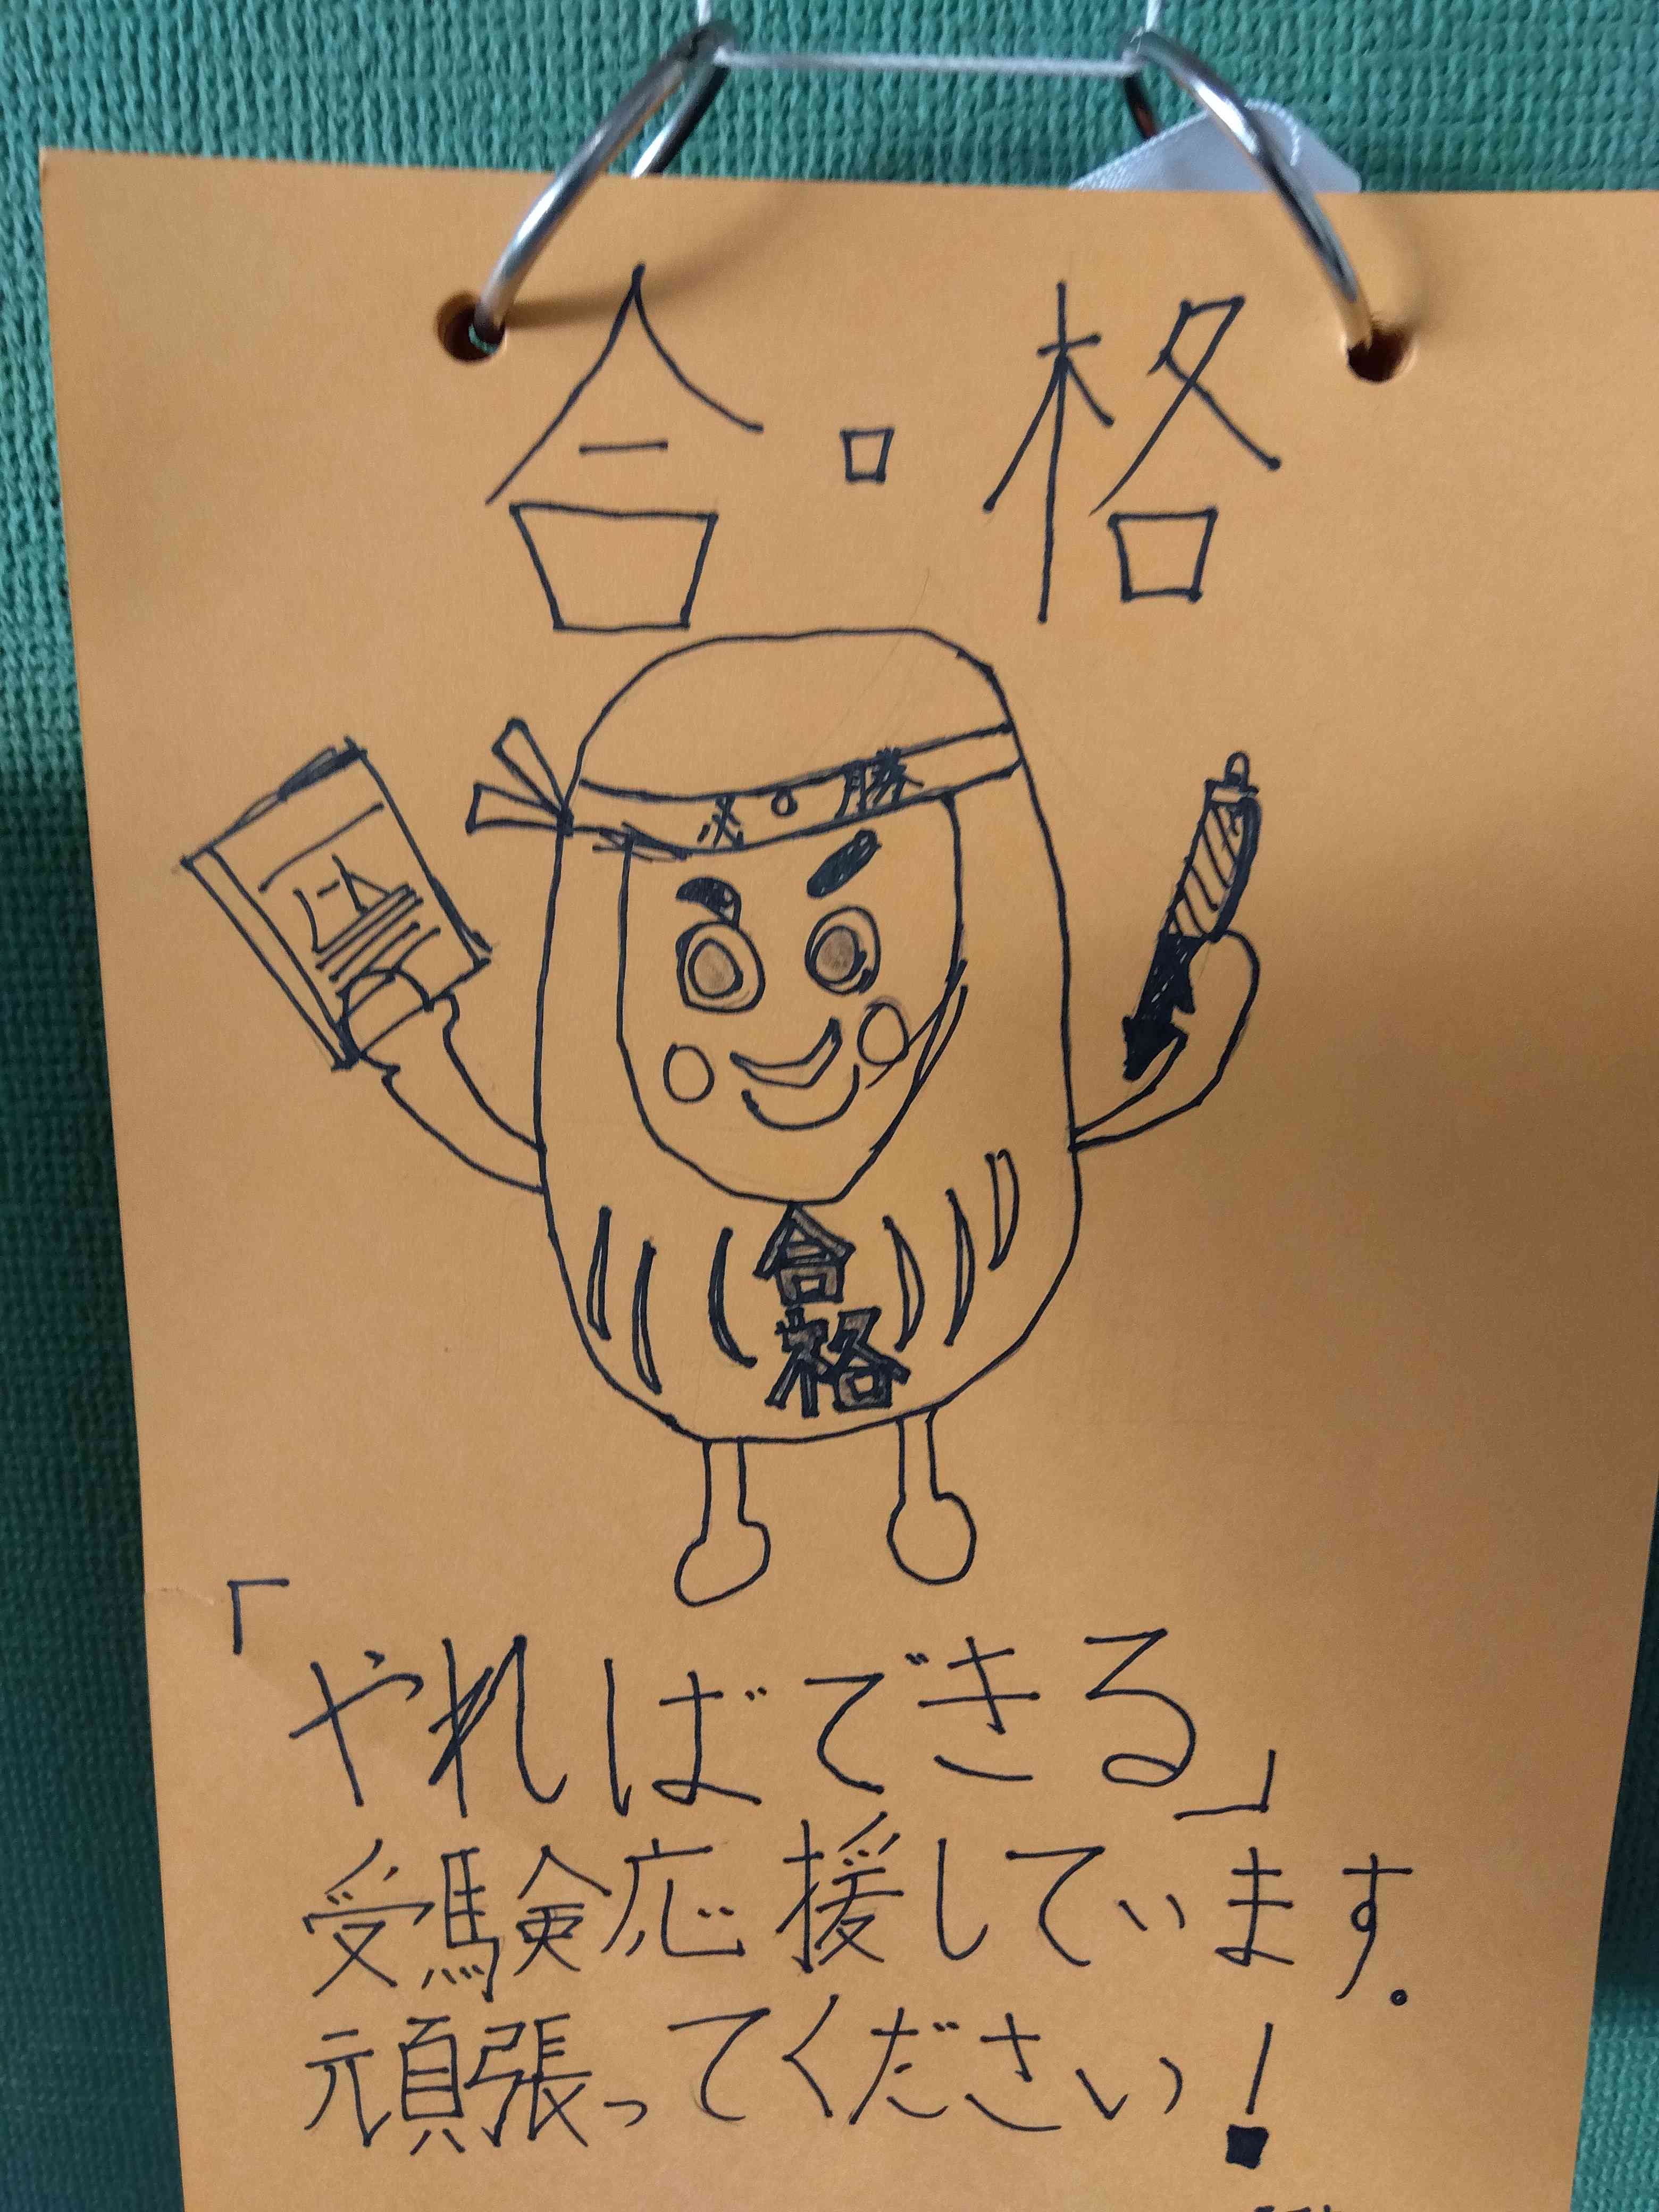 合・格
必・勝
合
格
「やればできる」
受験応援しています。
頑張ってください!